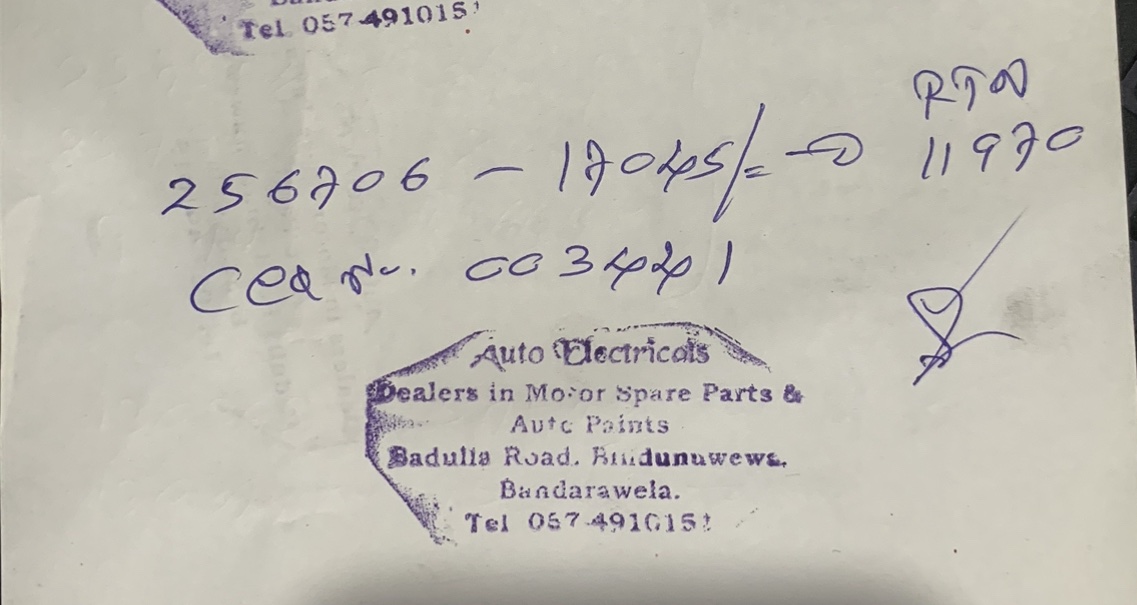 Tel 057-4910151
RTN
256706 - 17045/= → 11970
CEQ No. 0034441
Auto Electricals
Dealers in Motor Spare Parts &
Auto Paints
Badulla Road, Bindunuwewa,
Bandarawela.
Tel 057-4910151